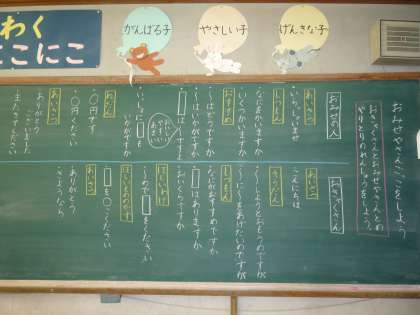 わく
にこにこ
がんばる子
やさしい子
げんきな子
おみせやさんごっこをしよう
おきゃくさんとおみせやさんとの
やりとりのれんしゅうをしよう。
おみせの人
あいさつ
・いらっしゃいませ
しつもん
・なにをかいますか
・いくつかいますか
おすすめ
・〜はどうですか
・〜はいかがですか
・いっしょに
いかがですか
ねだん
・〇円です
・〇円ください
あいさつ
・ありがとう
ございました
・またきてください
おきゃくさん
あいさつ
・こんにちは
・〜しようとおもうのですが
・〜にくをあげたいのですが
しつもん
・なにがおすすめですか
・はありますか
・おいくらですか
・〜のをください
・を〇ください
あいさつ
・ありがとう
・さようなら